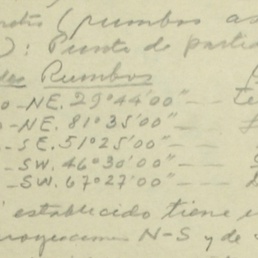 (rumbos as
): Punto de parti
des Rumbos
o-NE. 29°44'00" —
o-NE. 81°35'00" —
- SE. 51°25'00" —
- SW. 46°30'00" —
- SW. 67°27'00" —
establecido tiene
proyecciones N-S y de